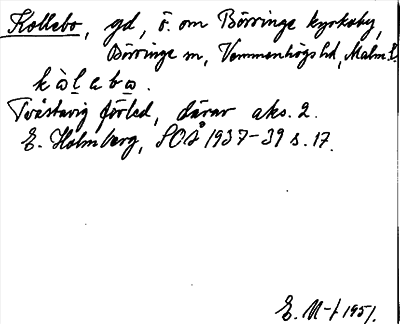 Kollebo, gd, ö. om Börringe kyrkoby,
Börringe sn, Vemmenhögs hd, Malm. l.
kòlabo.
Tvåstavig förled, därav aks. 2.
E. Holmberg, SOÅ 1937-39 s. 17.
E. M-f 1951.